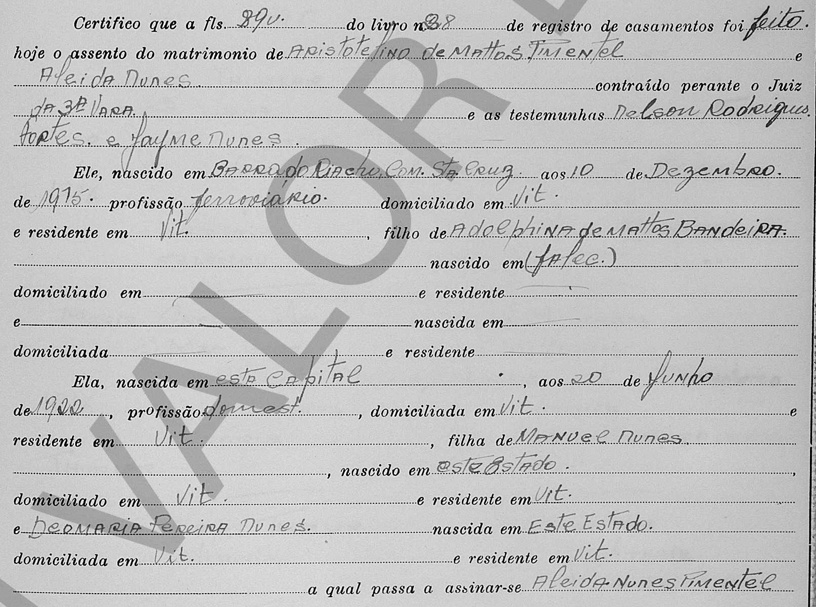 Certifico que a fls. 89v. do livro nº 38 de registro de casamentos foi feito.
hoje o assento do matrimonio de Aristotelino de Mattos Pimentel e
Aleida Nunes contraído perante o Juiz
da 3ª Vara e as testemunhas Nelson Rodrigues
Fortes. e Jayme Nunes.
Ele, nascido em Barra do Riacho, Com. Sta Cruz. aos 10 de Dezembro.
de 1915. profissão ferroviario. domiciliado em Vit.
e residente em Vit. , filho de Adolphina de Mattos Bandeira.
nascido em (falec.)
domiciliado em e residente
e nascida em
domiciliada e residente
Ela, nascida em esta Capital , aos 20 de Junho
de 1922 , profissão domest. , domiciliada em Vit. e
residente em Vit. , filha de Manuel Nunes
, nascido em este Estado. ,
domiciliado em Vit. e residente em Vit.
e Deomaria Pereira Nunes. nascida em Este Estado.
domiciliada em Vit. e residente em Vit.
a qual passa a assinar-se Aleida Nunes Pimentel
VALOR